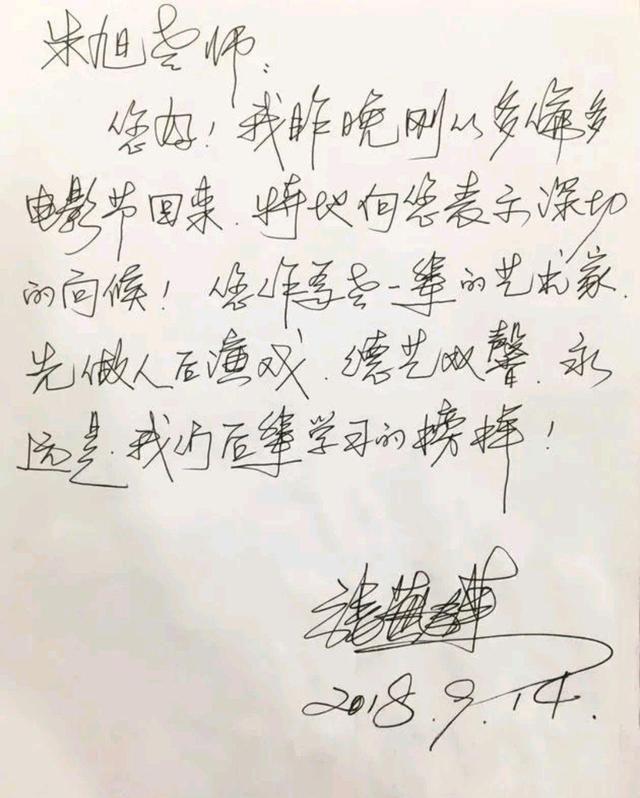 朱旭老师:
您好!我昨晚刚从多倫多
电影节回来.特地向您表示深切
的问候!您作为老一辈的艺术家.
先做人后演戏.德艺双馨.永
远是.我们后辈学习的榜样!
2018.9.14.